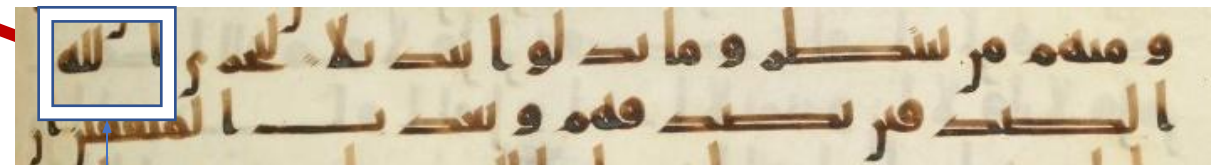 ومنهم من ينتظر وما بدلوا تبديلا ليجزي الله
الصدقين بصدقهم ويعذب المنفقين ان